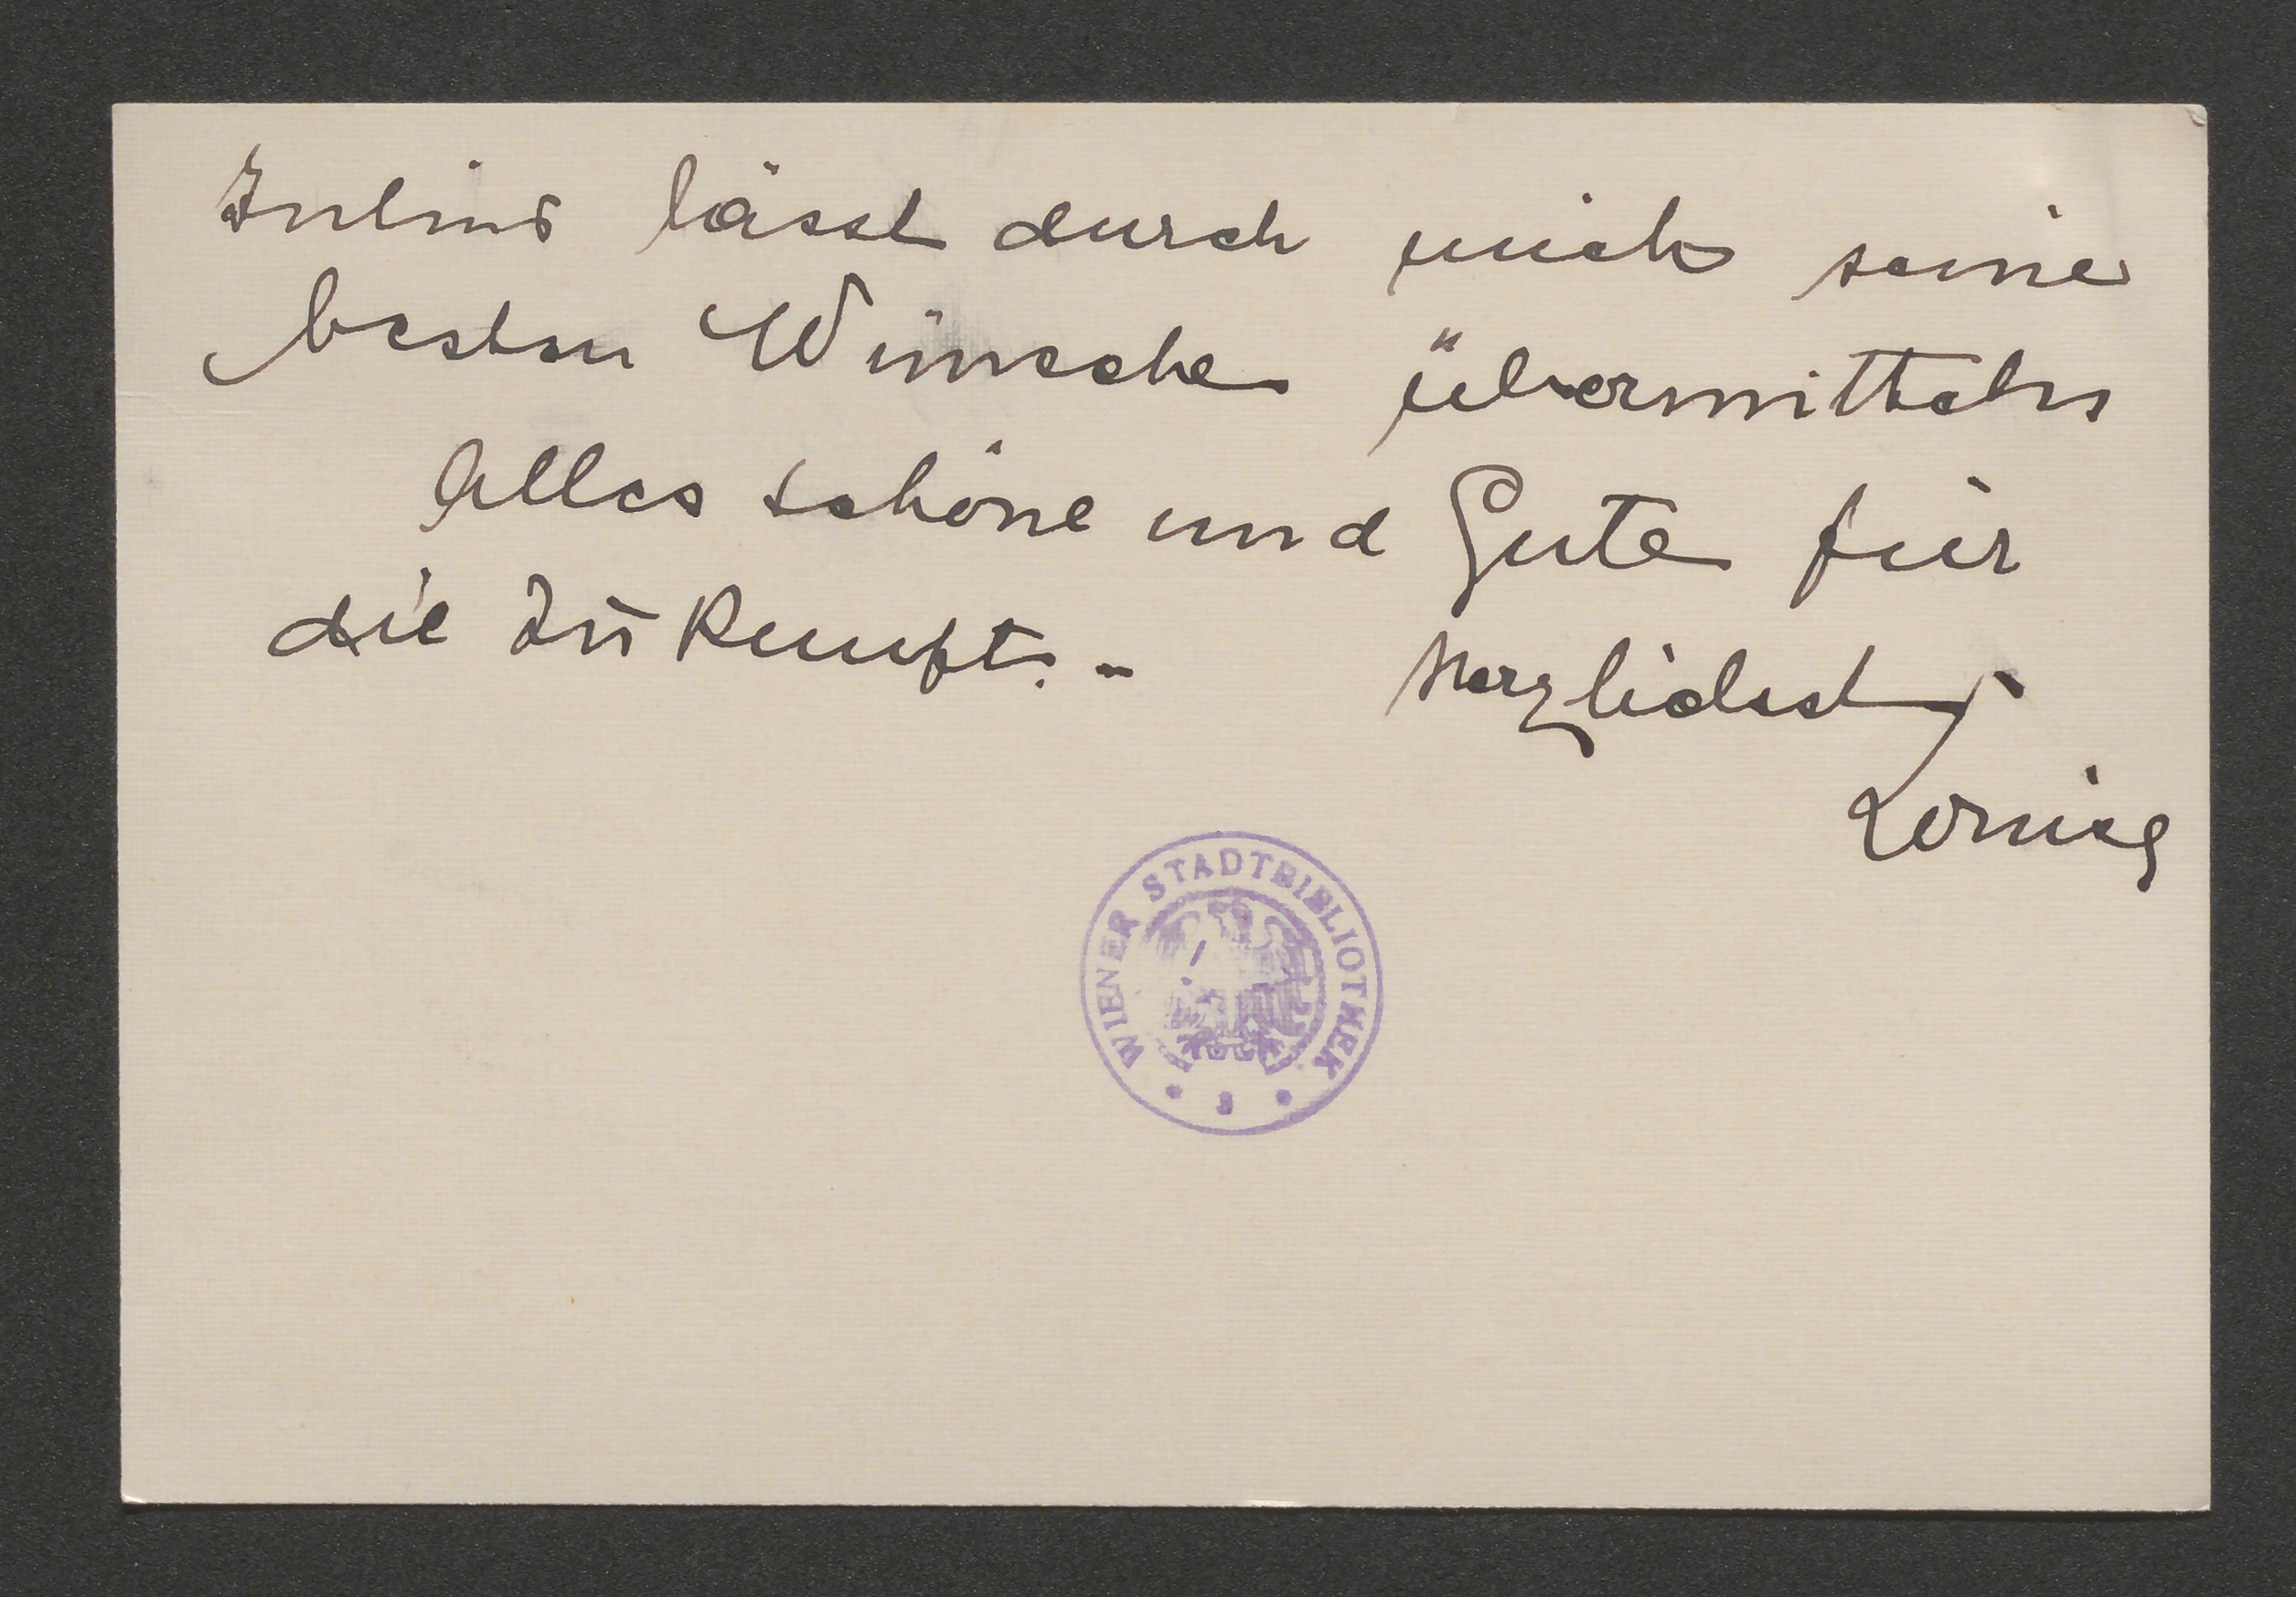 Julius lässt durch mich seine
besten Wünsche übermitteln
Alles schöne und Gute für
die Zukunft. -
Herzlichst
WIENER STADTBIBLIOTHEK